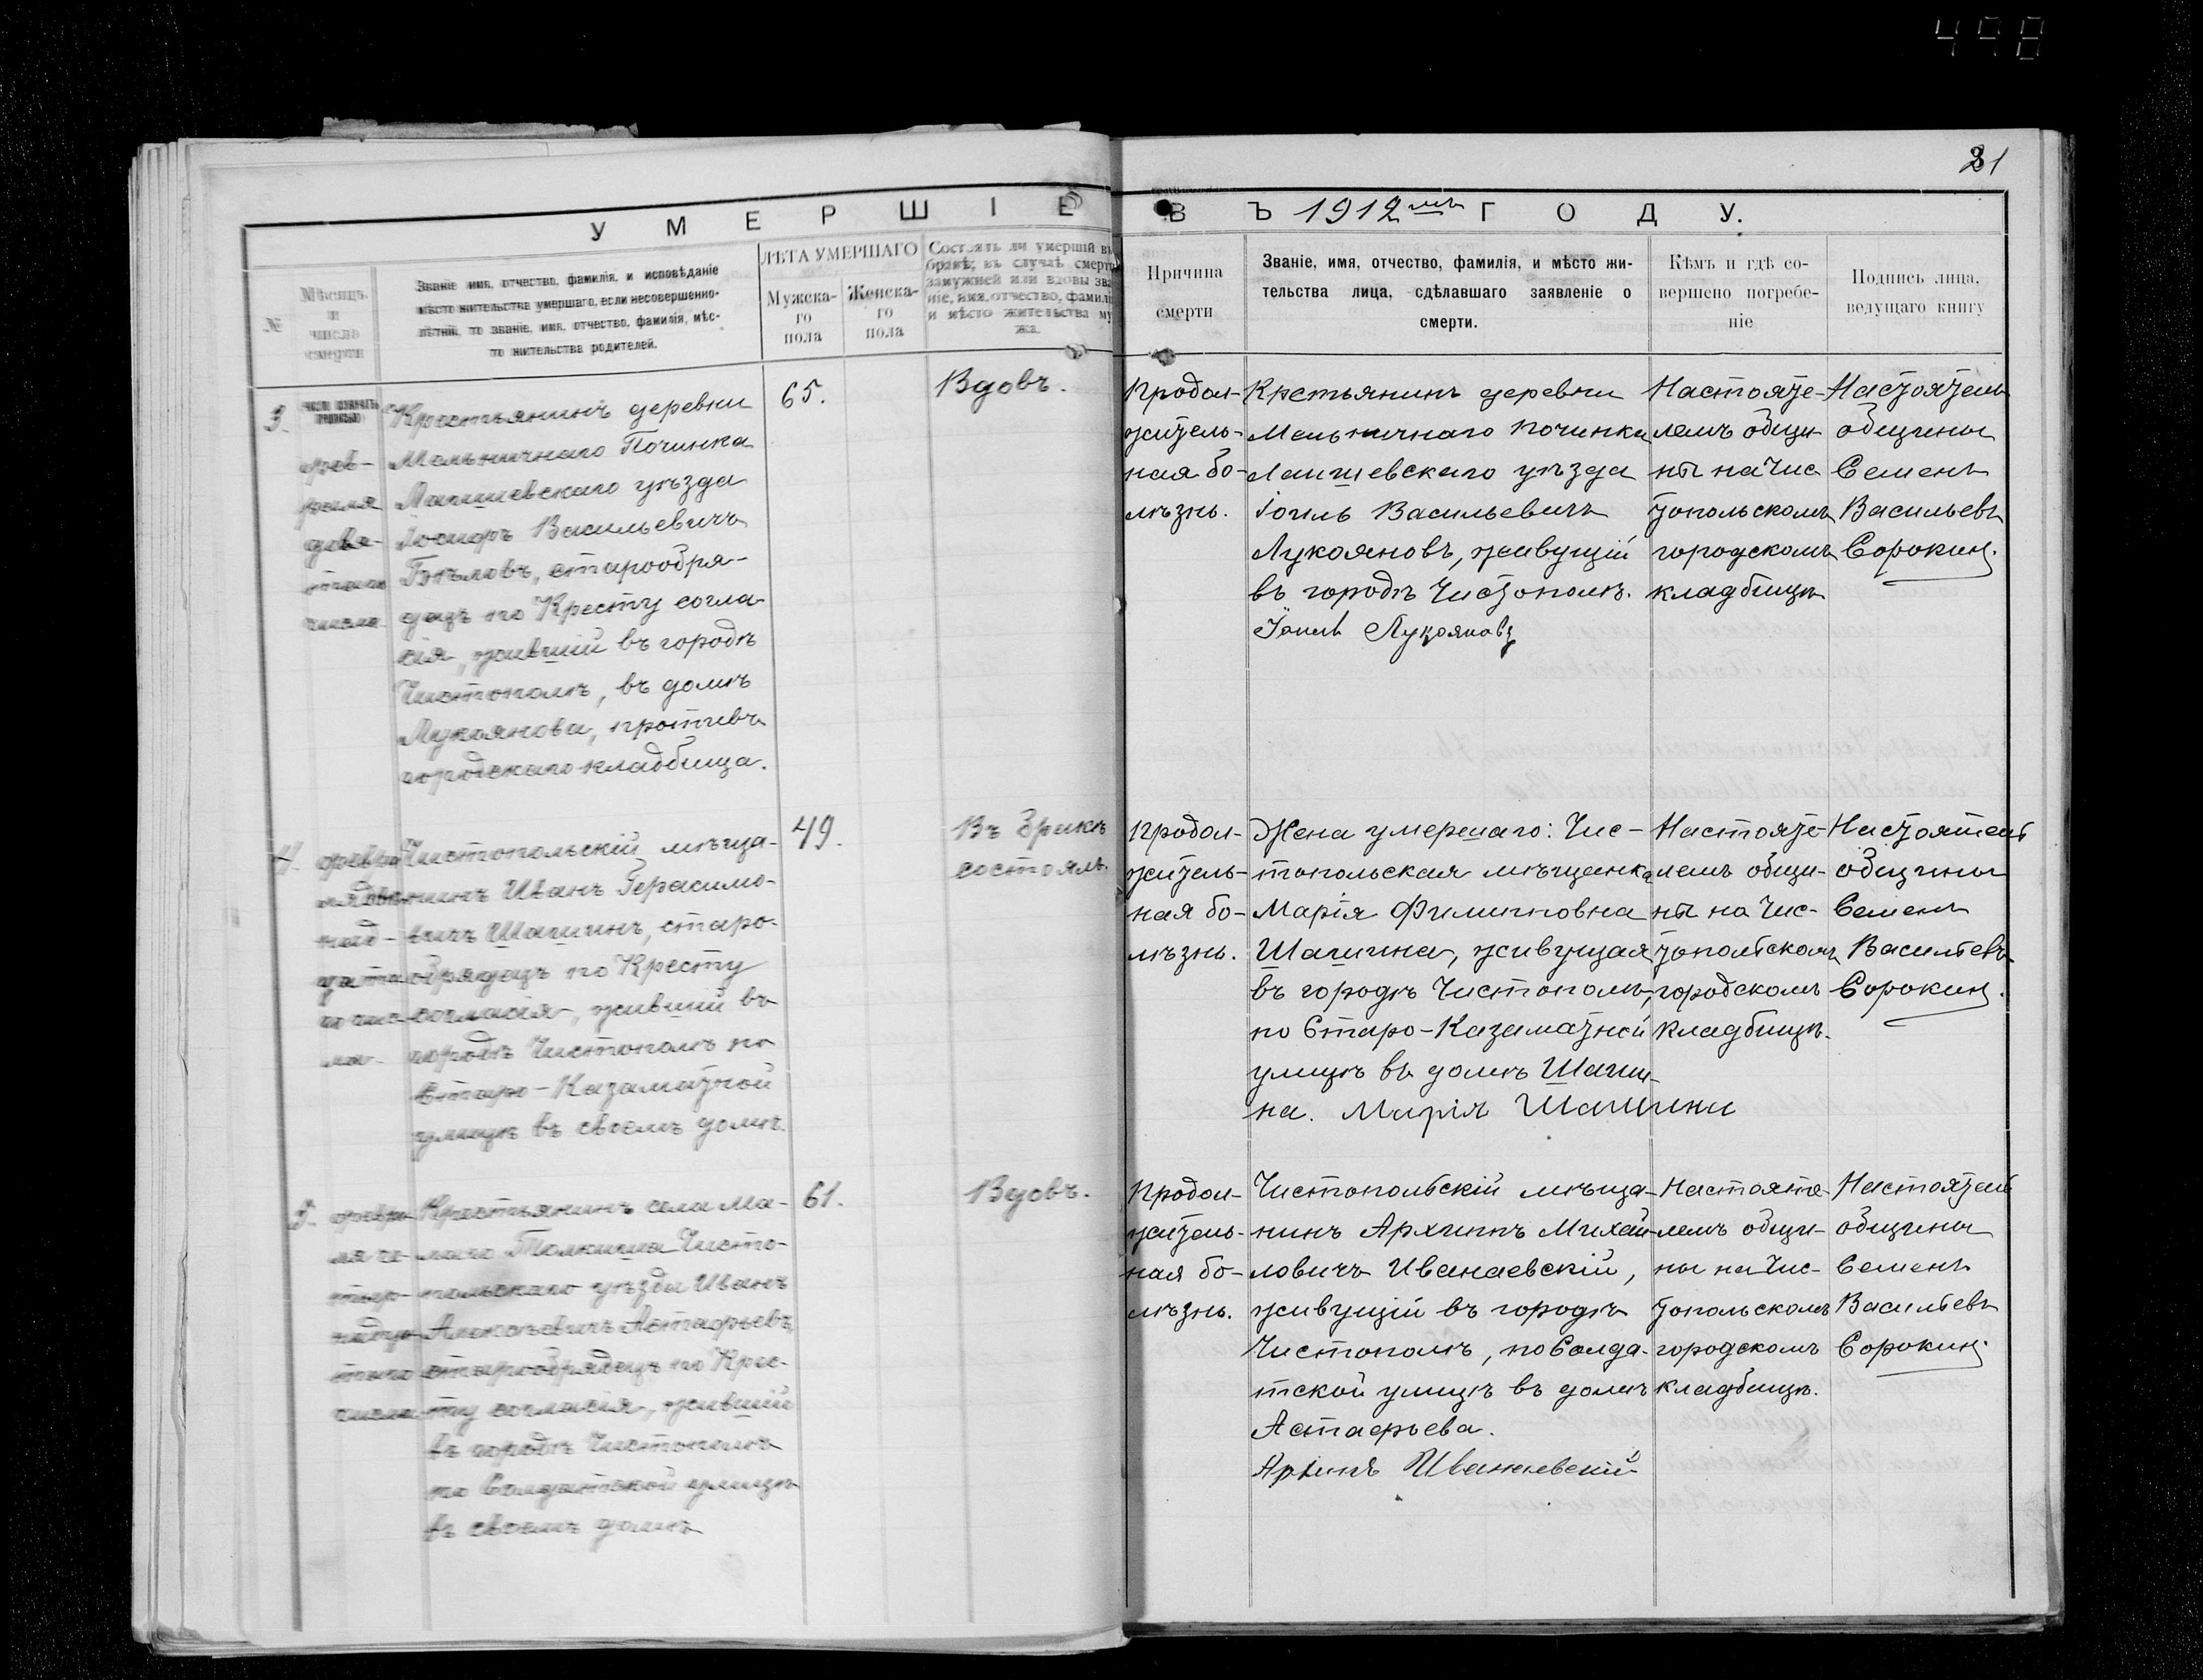 498
31
УМЕРШІЕ
ВЪ 1912мъ ГОДУ.
№
Мѣсяцъ
и
число
смерти
Званіе имя, отчество, фамилія, и исповѣданіе
мѣсто жительства умершаго, если несовершенно-
лѣтній, то званіе, имя, отчество, фамилія, мѣс-
то жительства родителей.
ЛѢТА УМЕРШАГО
Мужска-
го
пола
Женска-
го
пола
Состоятъ ли умершій въ
бракѣ; въ случаѣ смерти
замужней или вдовы зва-
ніе, имя, отчество, фамилія
и мѣсто жительства му-
жа.
Причина
смерти
Званіе, имя, отчество, фамилія, и мѣсто жи-
тельства лица, сдѣлавшаго заявленіе о
смерти.
Кѣмъ и гдѣ со-
вершено погребе-
ніе
Подпись лица,
ведущаго книгу
3.
фев-
раля
девя-
таго
числа
Крестьянинъ деревни
Мельничнаго Починка
Лаишевскаго уѣзда
Іосифъ Васильевичъ
старообря-
децъ по Кресту согла-
сія, жившій въ городѣ
Чистополѣ, въ домѣ
Лукоянова, противъ
городскаго кладбища.
65.
Вдовъ.
Продол-
житель-
ная бо-
лѣзнь.
Кретьянинъ деревни
Мельничнаго Починка
Лаишевскаго уѣзда
Іоиль Васильевичъ
Лукояновъ, живущій
въ городѣ Чистополѣ.
Іоиль Лукояновъ
Настояте-
лемъ общи-
ны на Чис-
топольскомъ
городскомъ
кладбищѣ
Настоятель
общины
Семенъ
Васильевъ
Сорокинъ.
4.
февра-
ля две-
над-
цата-
го чис-
ла
Чистопольскій мѣща-
нинъ Иванъ Герасимо-
вичъ Шашинъ, старо-
обрядецъ по Кресту
согласія, жившій въ
городѣ Чистополѣ по
Старо-Казаматной
улицѣ въ своемъ домѣ.
49.
Въ бракѣ
состоялъ.
Продол-
житель-
ная бо-
лѣзнь.
Жена умершаго: Чис-
топольская мѣщанка
Марія Филипповна
Шашина, живущая
въ городѣ Чистополѣ,
по Старо-Казаматной
улицѣ въ домѣ Шаши-
на. Марія Шашина
Настояте-
лемъ общи-
ны на Чис-
топольскомъ
городскомъ
кладбищѣ.
Настоятель
общины
Семенъ
Васильевъ
Сорокинъ.
5.
февра-
ля че-
тыр-
надца-
таго
числа
Крестьянинъ села Ма-
лаго Толкиша Чисто-
польскаго уѣзда Иванъ
Алексѣевичъ Астафьевъ,
старообрядецъ по Крес-
ту согласія, жившій
въ городѣ Чистополѣ
по Солдатской улицѣ
въ своемъ домѣ
61.
Вдовъ.
Продол-
житель-
ная бо-
лѣзнь.
Чистопольскій мѣща-
нинъ Архипъ Михай-
ловичъ Иванаевскій,
живущій въ городѣ
Чистополѣ, по Солда-
тской улицѣ въ домѣ
Астафьева.
Архипъ Иванаевскій
Настояте-
лемъ общи-
ны на Чис-
топольскомъ
городскомъ
кладбищѣ.
Настоятель
общины
Семенъ
Васильевъ
Сорокинъ.